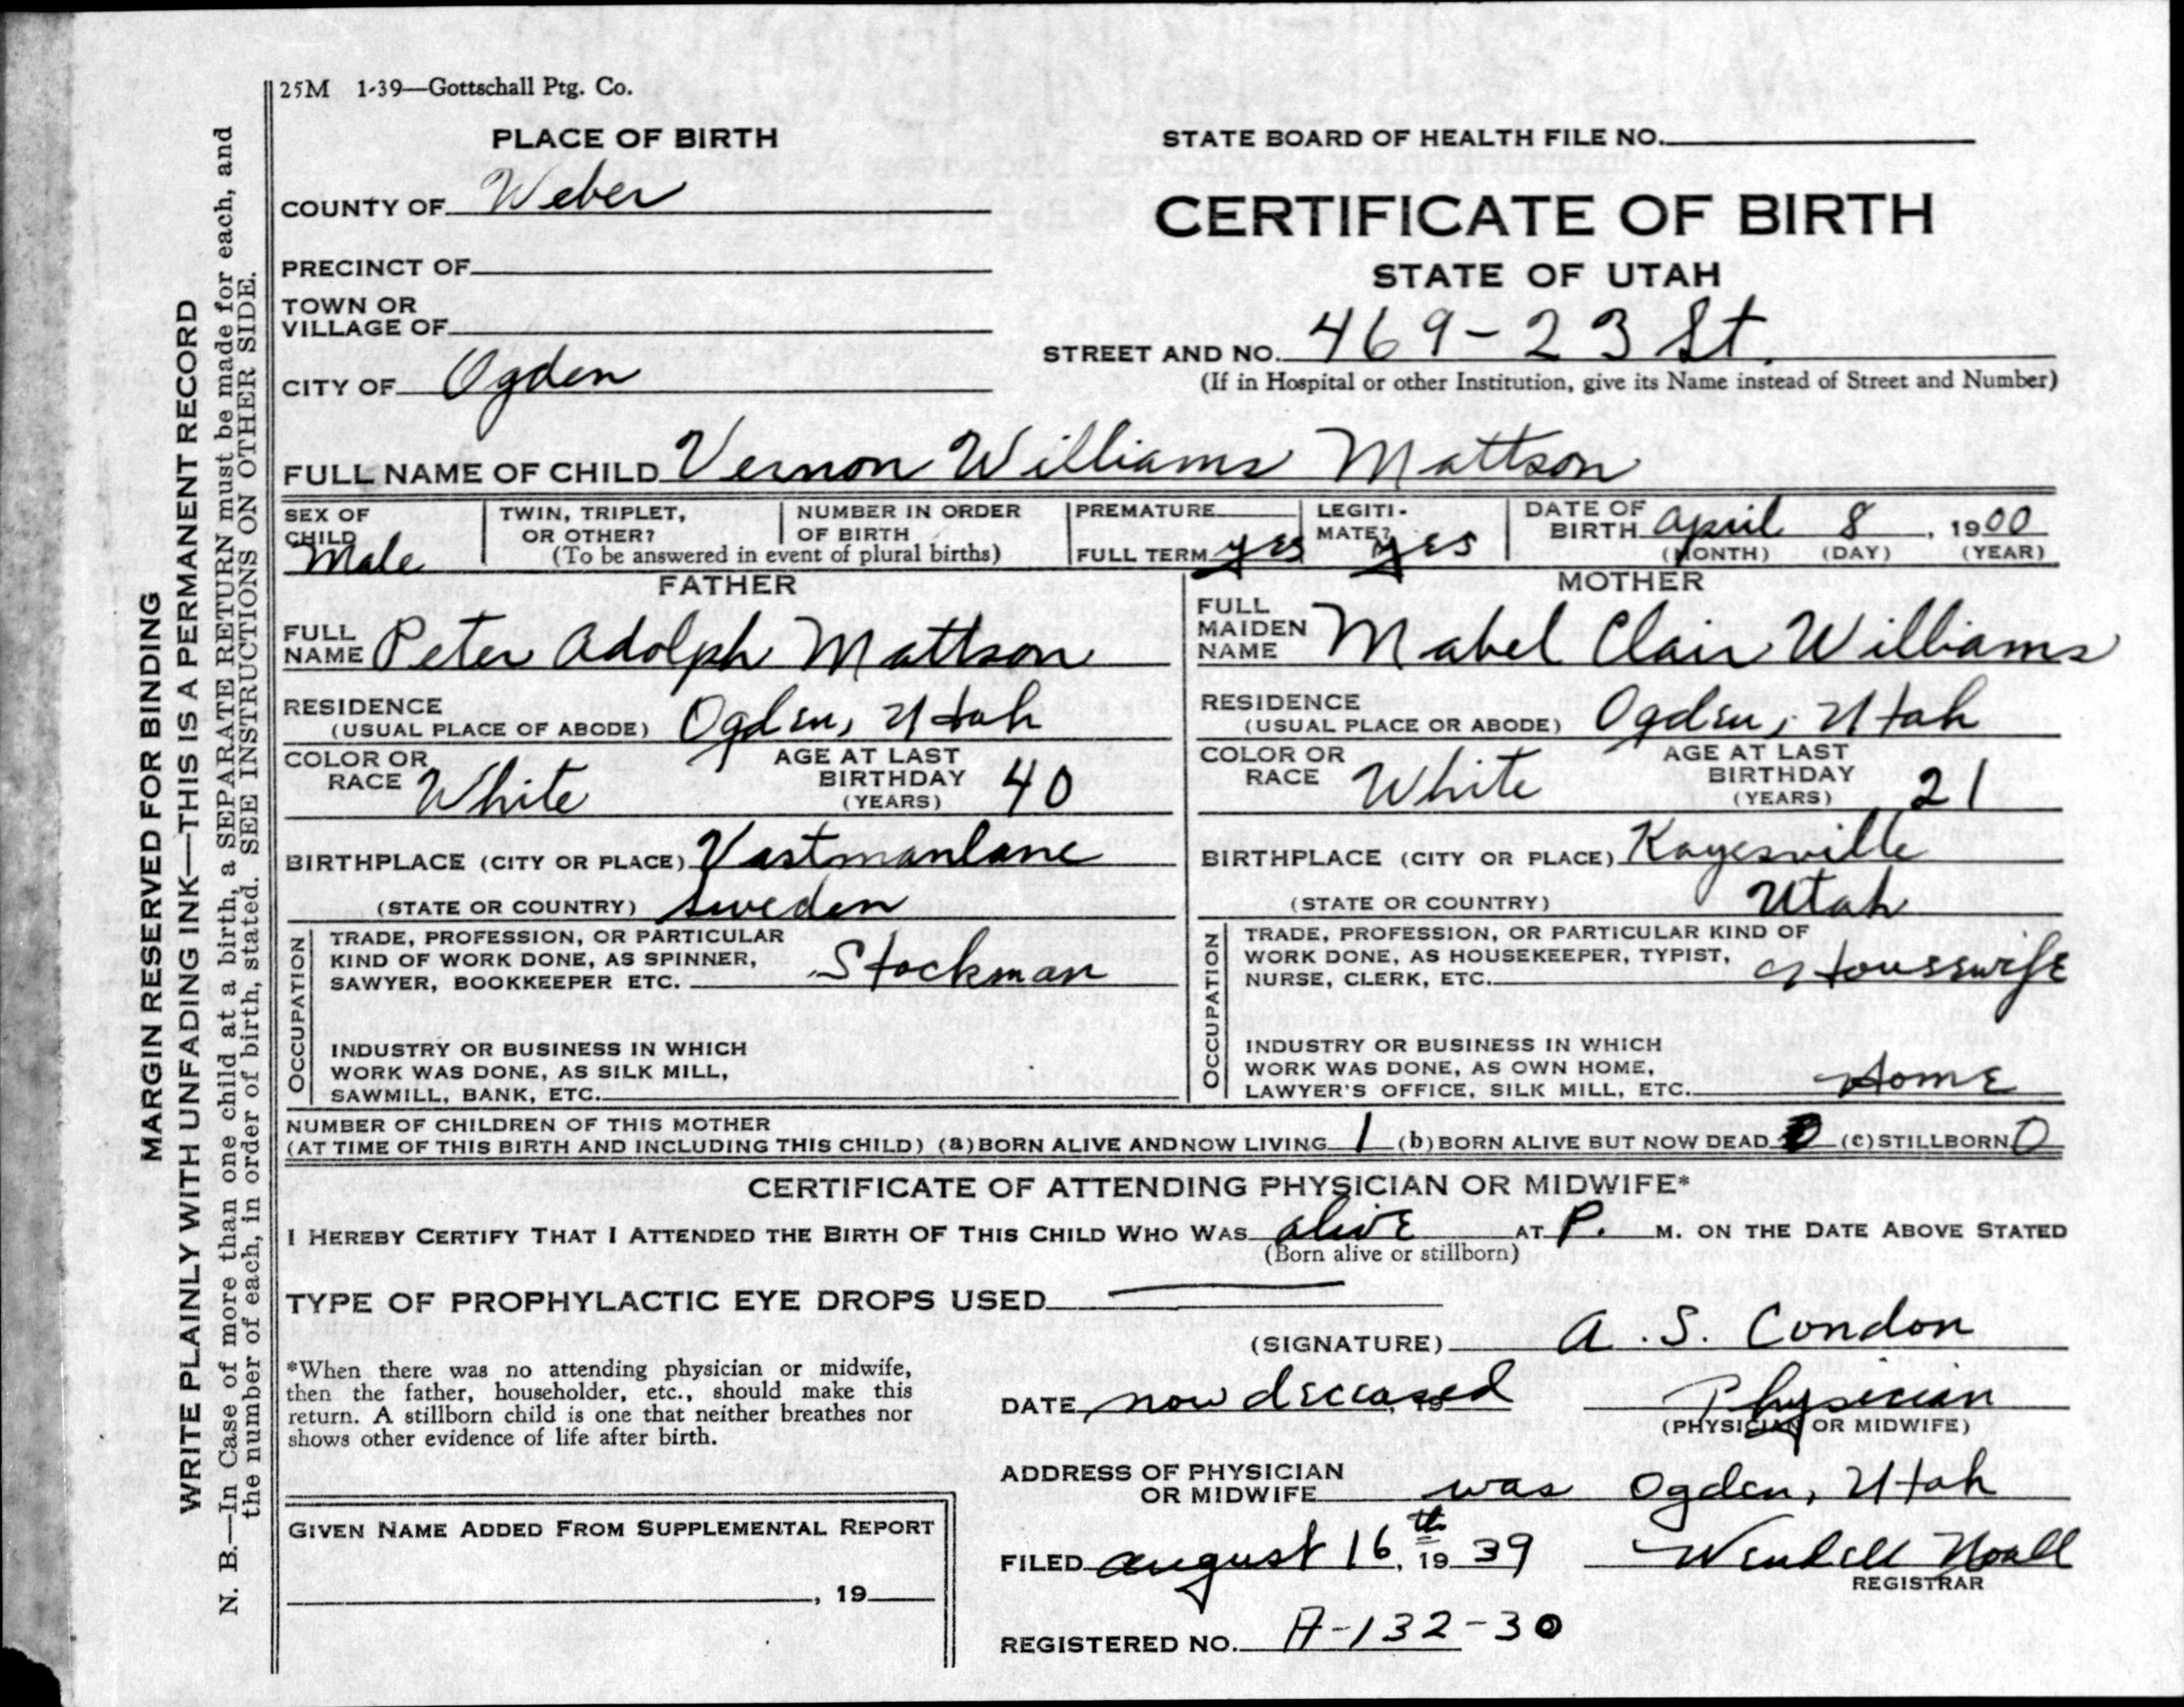 25M 1-39—Gottschall Ptg. Co.
MARGIN RESERVED FOR BINDING
WRITE PLAINLY WITH UNFADING INK—THIS IS A PERMANENT RECORD
N. B.—In Case of more than one child at a birth, a SEPARATE RETURN must be made for each, and
the number of each, in order of birth, stated. SEE INSTRUCTIONS ON OTHER SIDE.
PLACE OF BIRTH
COUNTY OF Weber
PRECINCT OF
TOWN OR
VILLAGE OF
CITY OF Ogden
STATE BOARD OF HEALTH FILE NO.
CERTIFICATE OF BIRTH
STATE OF UTAH
STREET AND NO. 469-23 St.
(If in Hospital or other Institution, give its Name instead of Street and Number)
FULL NAME OF CHILD Vernon Williams Mattson
SEX OF
CHILD
Male
TWIN, TRIPLET,
OR OTHER?
NUMBER IN ORDER
OF BIRTH
(To be answered in event of plural births)
PREMATURE
FULL TERM yes
LEGITI-
MATE? yes
DATE OF
BIRTH April 8, 1900
(MONTH) (DAY) (YEAR)
FATHER
FULL
NAME Peter Adolph Mattson
RESIDENCE
(USUAL PLACE OF ABODE) Ogden, Utah
COLOR OR
RACE White
AGE AT LAST
BIRTHDAY
(YEARS) 40
BIRTHPLACE (CITY OR PLACE) Vastmanlane
(STATE OR COUNTRY) Sweden
OCCUPATION
TRADE, PROFESSION, OR PARTICULAR
KIND OF WORK DONE, AS SPINNER,
SAWYER, BOOKKEEPER ETC. Stockman
INDUSTRY OR BUSINESS IN WHICH
WORK WAS DONE, AS SILK MILL,
SAWMILL, BANK, ETC.
MOTHER
FULL
MAIDEN
NAME Mabel Clair Williams
RESIDENCE
(USUAL PLACE OR ABODE) Ogden, Utah
COLOR OR
RACE White
AGE AT LAST
BIRTHDAY
(YEARS) 21
BIRTHPLACE (CITY OR PLACE) Kayesville
(STATE OR COUNTRY) Utah
OCCUPATION
TRADE, PROFESSION, OR PARTICULAR KIND OF
WORK DONE, AS HOUSEKEEPER, TYPIST,
NURSE, CLERK, ETC. Housewife
INDUSTRY OR BUSINESS IN WHICH
WORK WAS DONE, AS OWN HOME,
LAWYER'S OFFICE, SILK MILL, ETC. Home
NUMBER OF CHILDREN OF THIS MOTHER
(AT TIME OF THIS BIRTH AND INCLUDING THIS CHILD) (a) BORN ALIVE AND NOW LIVING 1 (b) BORN ALIVE BUT NOW DEAD 0 (c) STILLBORN 0
CERTIFICATE OF ATTENDING PHYSICIAN OR MIDWIFE*
I HEREBY CERTIFY THAT I ATTENDED THE BIRTH OF THIS CHILD WHO WAS alive AT P. M. ON THE DATE ABOVE STATED
(Born alive or stillborn)
TYPE OF PROPHYLACTIC EYE DROPS USED —
(SIGNATURE) A. S. Condon
*When there was no attending physician or midwife,
then the father, householder, etc., should make this
return. A stillborn child is one that neither breathes nor
shows other evidence of life after birth.
DATE now deceased, 19
Physician
(PHYSICIAN OR MIDWIFE)
ADDRESS OF PHYSICIAN
OR MIDWIFE was Ogden, Utah
GIVEN NAME ADDED FROM SUPPLEMENTAL REPORT
, 19
FILED August 16th, 19 39
Wendell Noall
REGISTRAR
REGISTERED NO. A-132-30